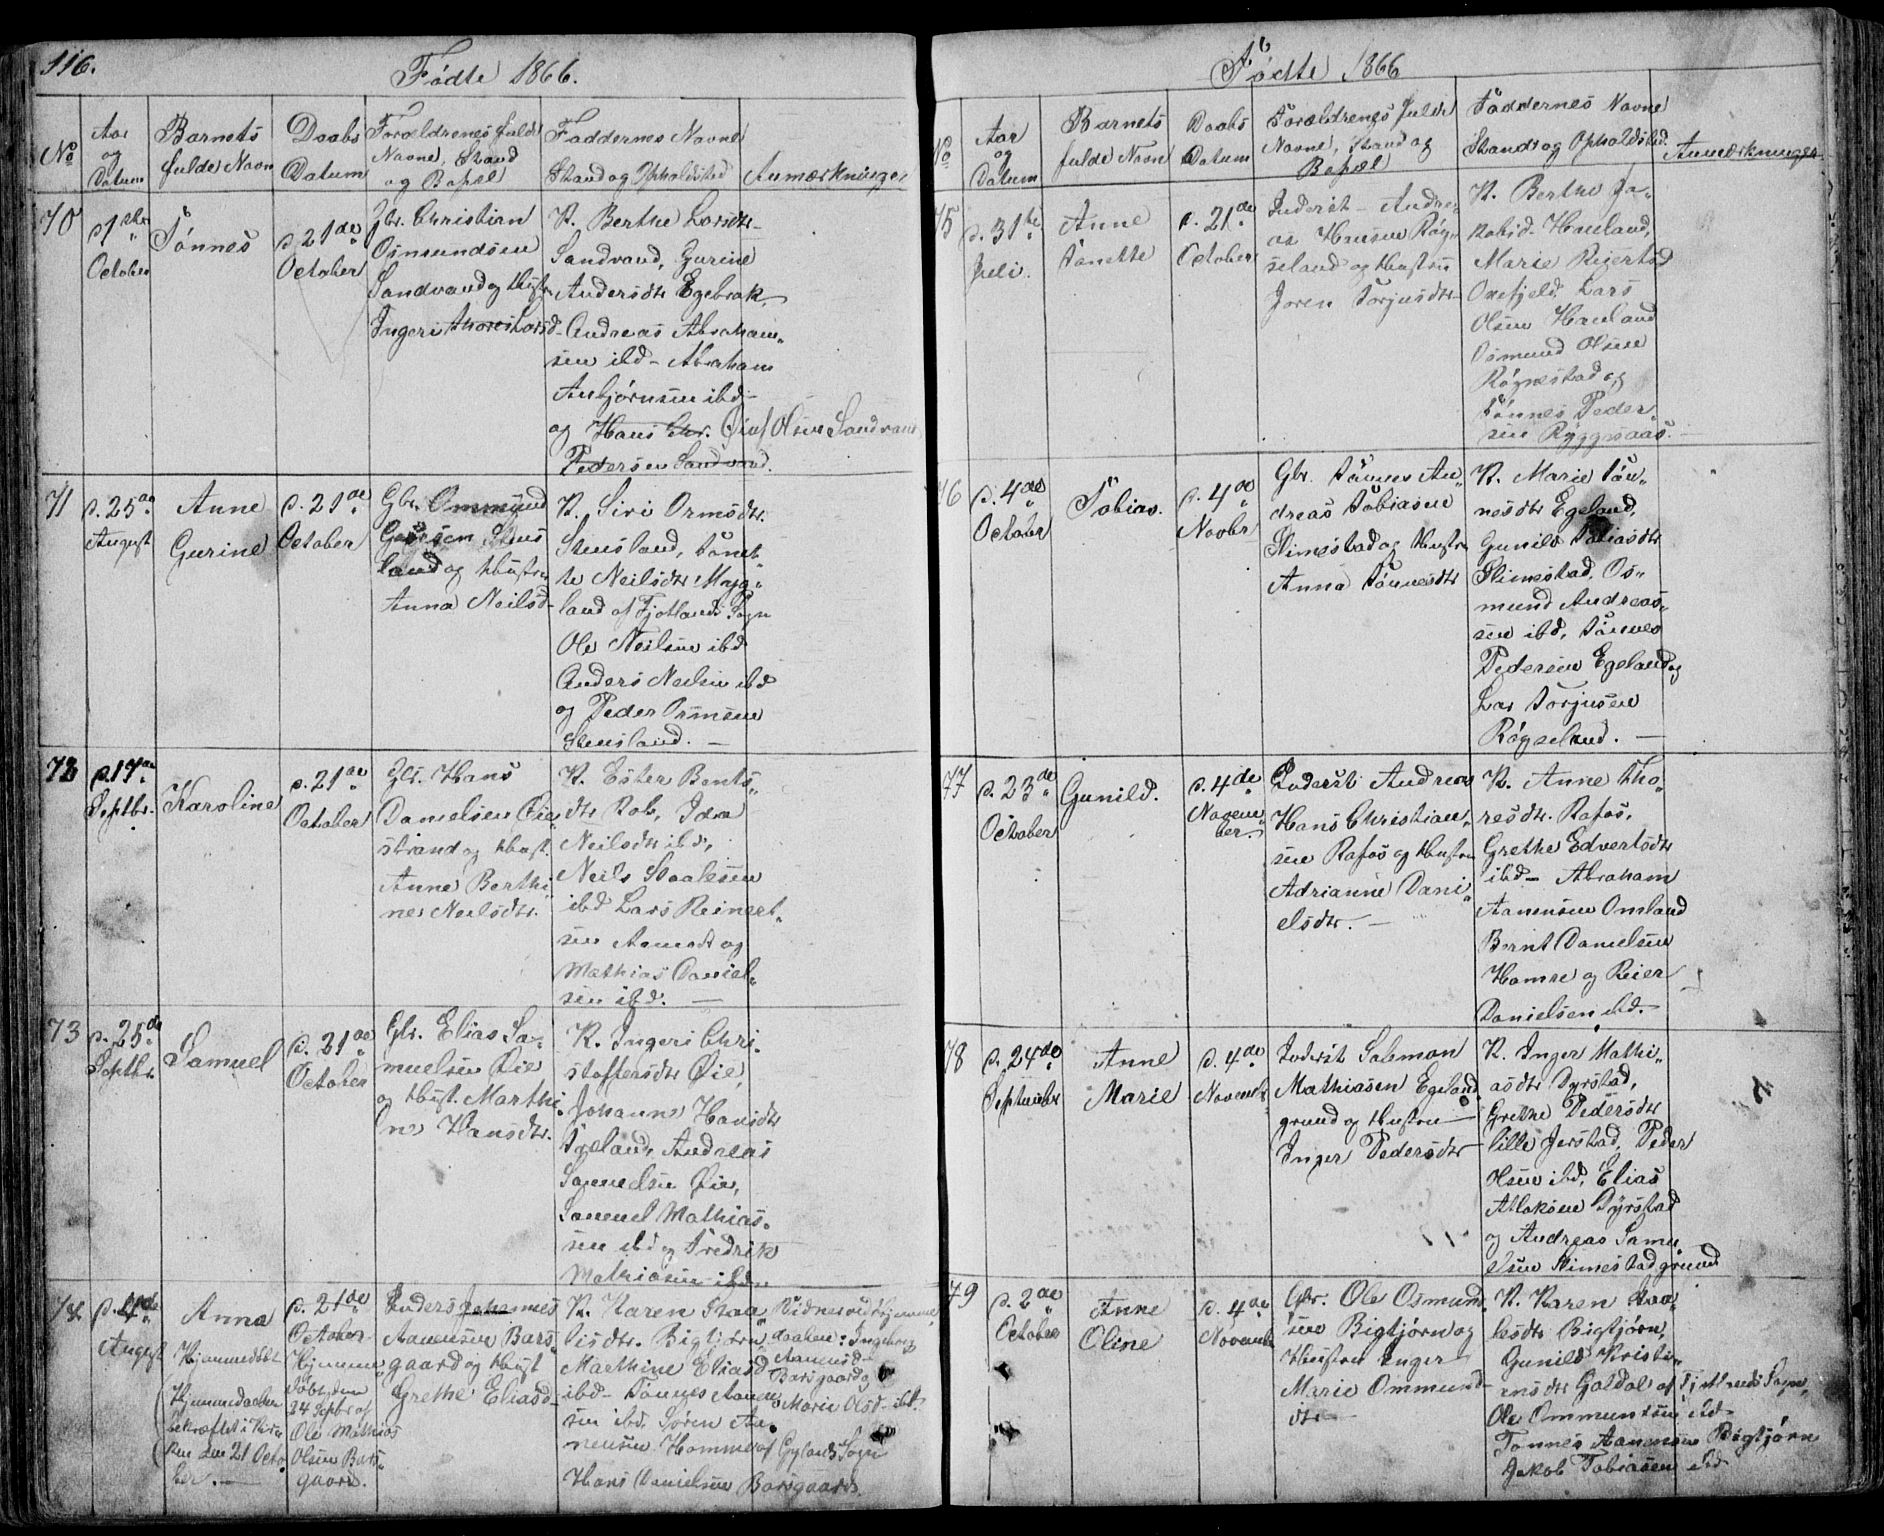 116.
Fødte 1866.
No
Aar
og
Datum
Barnets
fulde Navn
Daabs
Datum
Forældrenes fulde
Navne, Stand
og Bopæl
Faddernes Navne
Stand og Opholdsted
Anmærkninger
70
October
Tønnes
d. 21de
October
Gbr. Christian
Osmundsen
Sandvand og Hustr
Ingeri Larsd
K. Berthe Larsdtr
Sandvand, Gurine
Andersdtr Egebrak,
Andreas Abraham-
sen ibd - Abraham
Anbjørnsen ibd -
og Hans Chr. Oluf Olsen Sandvand
Pedersen Sandvand.
71
d. 25de
August
Anne
Gurine
d. 21de
October
Gbr. Ommund
Stens
land og Hustru
Anna Neilsd
K. Siri Ormsdtr.
Stensland, Tønet-
te Neilsdtr Myg-
land af Fjotlands Sogn
Ole Neilsen ibd
Anders Neilsen ibd
og Peder Ormsen
Stensland. -
72
d. 17de
Septbr.
Karoline
d. 21de
October
Gbr. Hans
Danielsen Øie-
strand og Hust.
Anne Berthi
ne Neilsdtr.
K. Ester Bents-
dtr Rob, Ida
Neilsdtr ibd,
Neils Staalesen
ibd Lars Reinert-
sen Aamodt og
Mathias Daniel-
sen ibd. -
73
d. 25de
Septbr.
Samuel
d. 21de
October
Gbr. Elias Sa-
muelsen Øie
og Hust. Marthi
ne Hansdtr.
K. Ingeri Chri-
stoffersdtr Øie,
Johanne Hansdtr
Egeland, Andreas
Samuelsen Øie,
Samuel Mathias-
sen ibd og Fredrik
Mathiasen ibd
74
August
Anna
Hjemmedøbt
Hjemmedaaben
bekræftet i Kir
ken den 21 Octo
ber. -
d. 21de
October
Hjemme
døbt den
24 Septbr af
Ole Mathias
Olsen Bars-
gaard.
Inderst Johannes
Aanensen Bars-
gaard og Hust
Grethe Eliasd
K. Karen Staa
lesdtr. Bigtjørn,
Marthine Eliasd
ibd - Tønnes Aanen
sen ibd. Søren Aa-
nensen Homme af Gylands Sogn
Hans Danielsen Barsgaard.
Vidner ved Hjemme
daaben: Ingeborg
Aanensd -
Barsgaard og
Marie Olsd - ibd.
Fødte 1866
No
Aar
og
Datum
Barnets
fulde Navn
Daabs
Datum
Forældrenes fulde
Navne, Stand og
Bopæl
Faddernes Navne
Stand og Opholdsted.
Anmærkninger
75
d. 31te
Juli.
Anne
Tonette
d. 21de
October
Inderst - Andre-
as Hansen Røg-
seland og Hustru
Joren Torjusdtr
K. Berthe Ja-
kobsd. Hauland,
Marie Reiertsd
Oxefjeld, Lars
Olsen Hauland
Osmund Olsen
Røgnestad og
Tønnes Peder-
sen Ryggsaas.
76
d. 4de
October
Tobias.
d. 4de
Novbr
Gbr. Tønnes An-
dreas Tobiasen
Slimestad og Hustru
Anna Tønnesdtr
K. Marie Tøn-
nesdtr Egeland,
Gunild Tobiasdtr
Slimestad, Os-
mund Andreas-
sen ibd, Tønnes
Pedersen Egeland og
Lar Torjusen
Røgseland. -
77
d. 23de
October
Gunild.
d. 4de
Novem-
ber.
Inderst Andreas
Hans Christian-
sen Rafos og Hustru
Adrianne Dani-
elsdtr. -
K. Anne Tho-
resdtr. Rafos,
Grethe Edvertsdtr
ibd - Abraham
Aanensen Omland
Bernt Danielsen
Hamre og Reier
Danielsen ibd.
78
d. 24de
September
Anne
Marie
d. 4de
November
Inderst Salomon
Mathiasen Egeland
grund og Hustru
Inger Pedersdtr
K. Inger Mathi-
asdtr Dyrstad,
Grethe Pedersdtr
lille Jerstad, Peder
Olsen ibd, Elias
Atlaksen Dyrstad
og Andreas Samu-
elsen Slimestadgrund
79
d. 2de
October
Anne
Oline
d. 4de
November
Gbr. Ole Osmund-
sen Bigtjørn og
Hustru Inger
Marie Ommund-
dtr -
K. Karen Staa-
lesdtr Bigtjørn,
Gunild Kristi-
ensdtr Galdal af Fjotlands Sogn,
Ole Ommundsen ibd
Tønnes Aanensen Bigtjørn
Jakob Tobiasen ibd